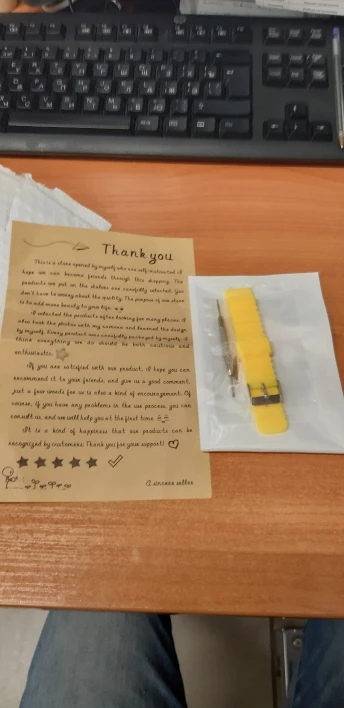 Thank you
This is a store opened by myself who are self-motivated. I
hope we can become friends through this shopping. The
products we put on the shelves are carefully selected. You
don't have to worry about the quality. The purpose of our store
is to add more beauty to your life.
I selected the products after looking for many places. I
also took the photos with my camera and learned the design
by myself. Every product was carefully packaged by myself. I
think everything we do should be both cautious and
enthusiastic.
If you are satisfied with our product, I hope you can
recommend it to your friends, and give us a good comment.
Just a few words for us is also a kind of encouragement. Of
course, if you have any problems in the use process, you can
consult us, and we will help you at the first time.
It is a kind of happiness that our products can be
recognized by customers. Thank you for your support!
A sincere seller